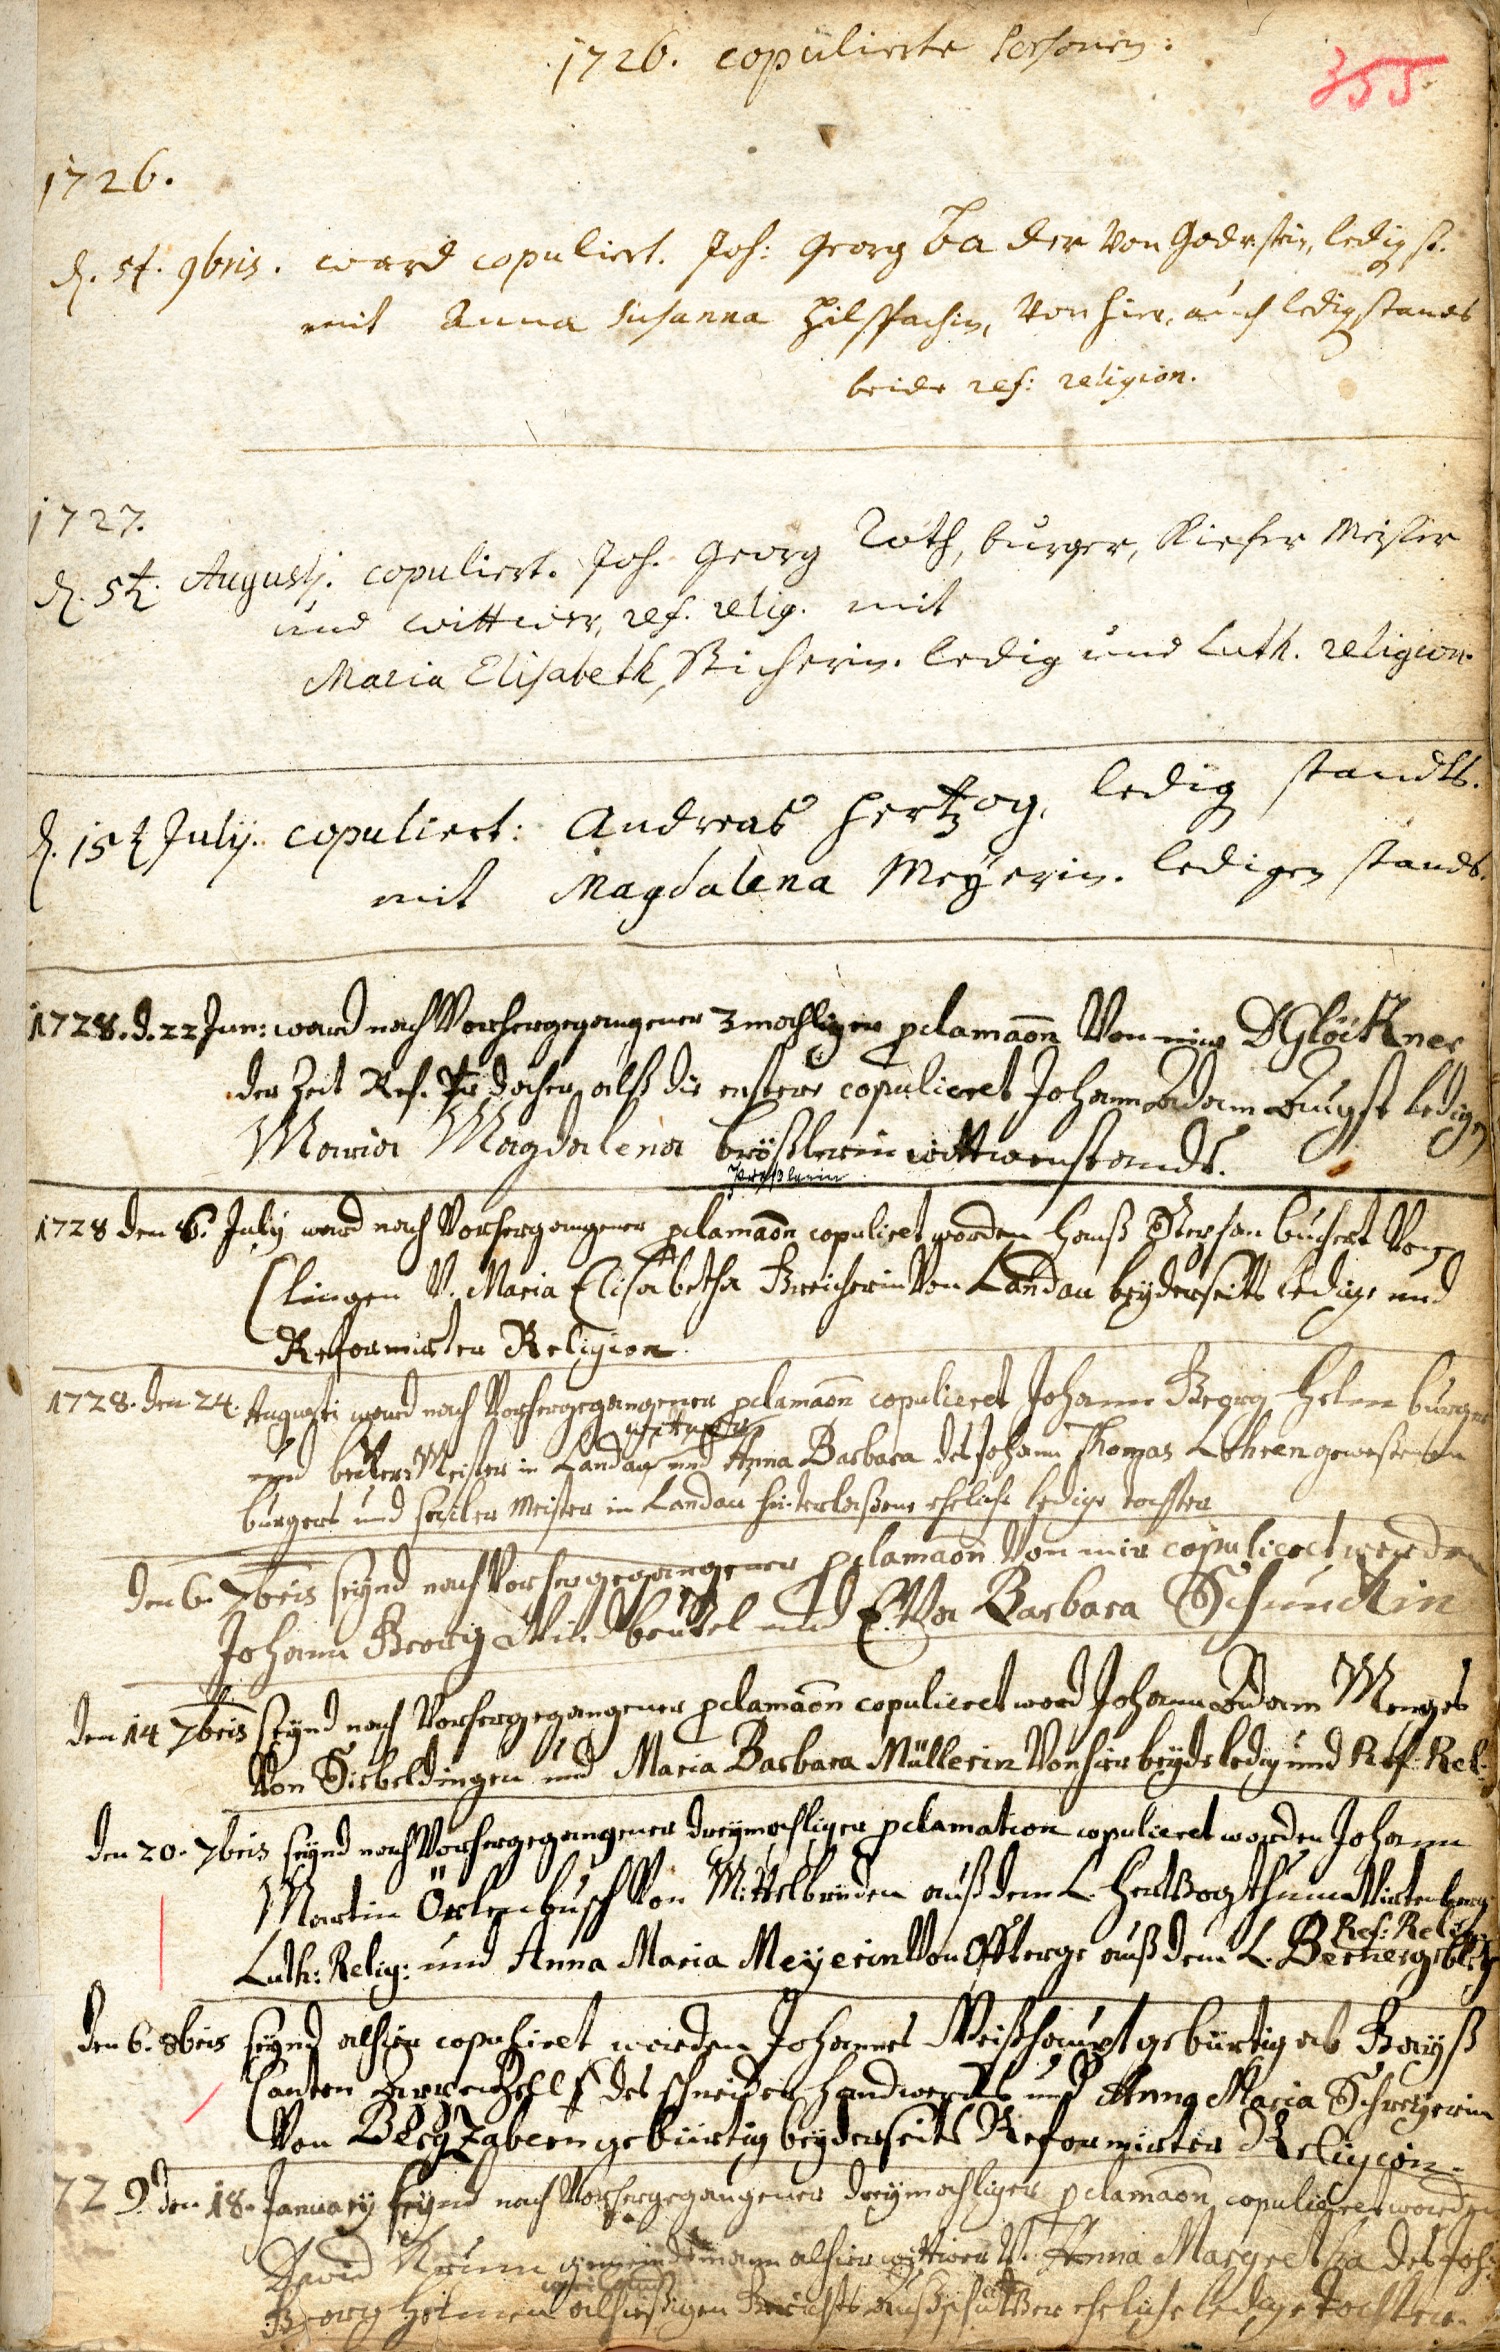 1726. copulierte Personen:
355
1726.
d. 5t. 9bris. ward copuliert. Joh: Georg Bader von Godrstein, ledig st.
mit Anna Susanna Hilspachin, von hier, auch ledig stands
beide ref: religion.
1727.
d. 5t. Augustj. copuliert. Joh. Georg Roth, burger, Kiefer Meister
und wittwer, ref. relig. mit
Maria Elisabeth, ledig und Luth. religion.
d. 15t July. copuliert: Andreas Hertzog, ledig standts.
mit Magdalena Meÿerin. ledigen stands.
1728. d. 22 Jun: ward nach Vorhergegangener 3mahliger pclamaõn Von mir DGlöckner
der Zeit Ref. daher alß die erstere copulieret Johann Adam ledigen
Maria Magdalena Brößlerin wittwenstands.
1728 den 6. July ward nach Vorhergangener pclamaõn copuliret worden Hanß Stephan buchert Von
Clingen V. Maria Elisabetha Von Landau beÿderseits ledige und
Reformirter Religion
1728. den 24. Augusti ward nach Vorhergegangener pclamaõn copulieret Johann Georg Helm burger
wittwer
und becker Meister in Landau und Anna Barbara des Johann Thomas gewesenen
burgers und seiler Meister in Landau hinterlaßene eheliche ledige tochter
den 6. 7bris seÿnd nach Vorhergegangener pclamaõn Von mir copulieret worden
Johann Georg und Eva Barbara Schunckin
den 14 7bris seÿnd nach Vorhergegangener pclamaõn copulieret word Johann Adam Menges
Von Siebeldingen und Maria Barbara Müllerin Von hier beÿde ledig und Ref: Rel:
den 20. 7bris seÿnd nach Vorhergegangener dreÿmahliger pclamation copulieret worden Johann
Martin Von auß dem L. Hertzogthum Wirtenberg
Ref: Relig:
Luth: Relig: und Anna Maria Meÿerin Von auß dem L.
den 6. 8bris seÿnd alhier copuliret worden Johannes Weißhaupt gebürtig
Canton des schneider handwercks und Anna Maria
Von gebürtig beÿderseits Reformirter Religion.
1729. den 18. Januarÿ seÿnd nach Vorhergegangener dreÿmahliger pclamaõn copulieret worden
David alhier wittwer V. Anna Margretha des Joh:
Georg alhießigen Gerichts eheliche ledige tochter.